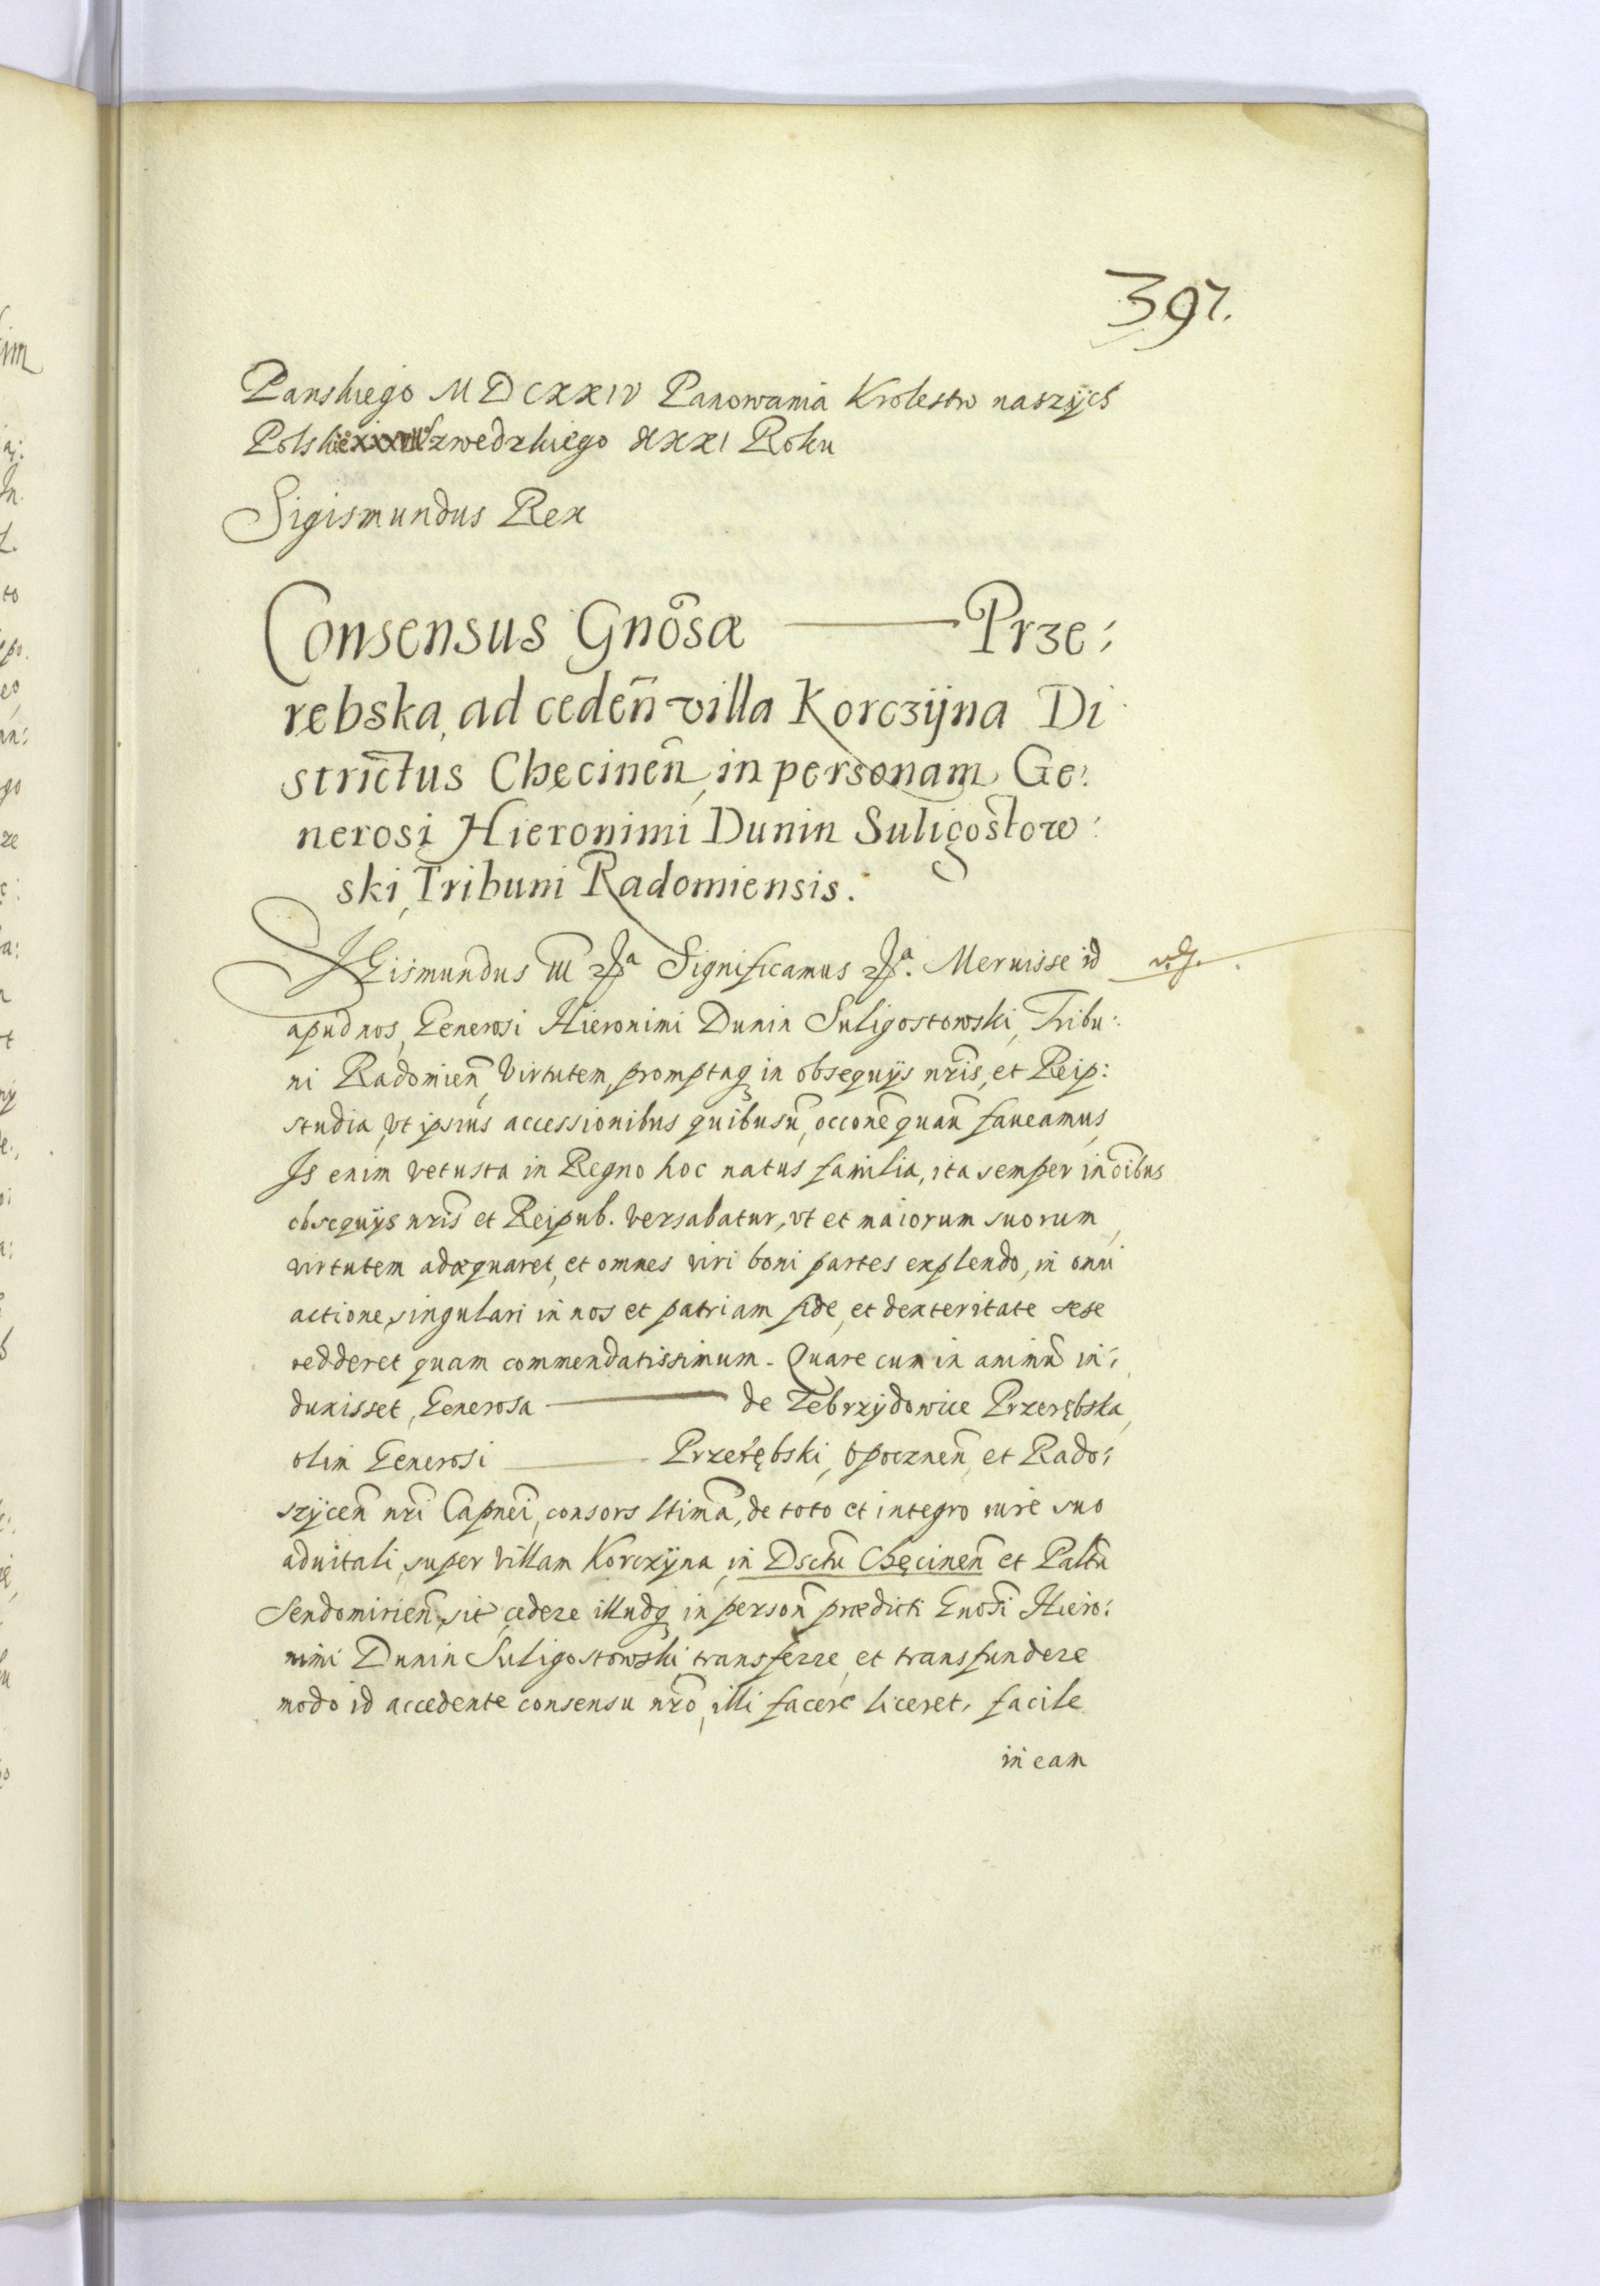 397.
Panskiego MDCXXIV Panowania Krolestw naszÿch
Polskie° XXXVII Szwedzkiego XXXI Roku
Sigismundus Rex
Consensus Gnosæ — Prze:
rebska, ad ceden villa Korczÿna Di
strictus Checinen, in personam Ge:
nerosi Hieronimi Dunin Suligostow:
ski, Tribuni Radomiensis.
SIGismundus III Significamus Meruisse id
apud nos, Generosi Hieronimi Dunin Suligostowski, Tribu:
ni Radomien, Virtutem, promptaq in obsequÿs nris, et Reip:
studia, vt ipsius accessionibus quibusu, occone quan faueamus,
Is enim vetusta in Regno hoc natus familia, ita semper in oibus
obsequÿs nris et Reipub. versabatur, vt et maiorum suorum,
virtutem adæquaret, et omnes viri boni partes explendo, in omi
actione, singulari in nos et patriam fide, et dexteritate sese
redderet quam commendatissimum. Quare cum in animu in:
duxisset, Generosa — de Zebrzÿdowice Przerębska,
olim Generosi — Przerębski, Opocznen, et Rado:
szÿcen nri Capnei, consors ltima, de toto et integro iure suo
aduitali, super villam Korczÿna, in Dsctu Chęcinen et Paltu
Sendomirien, sit, cedere illudq in person prædicti Gnosi Hiero:
nimi Dunin Suligostowski transferre, et transfundere
modo id accedente consensu nro, illi facere liceret, facile
in eam